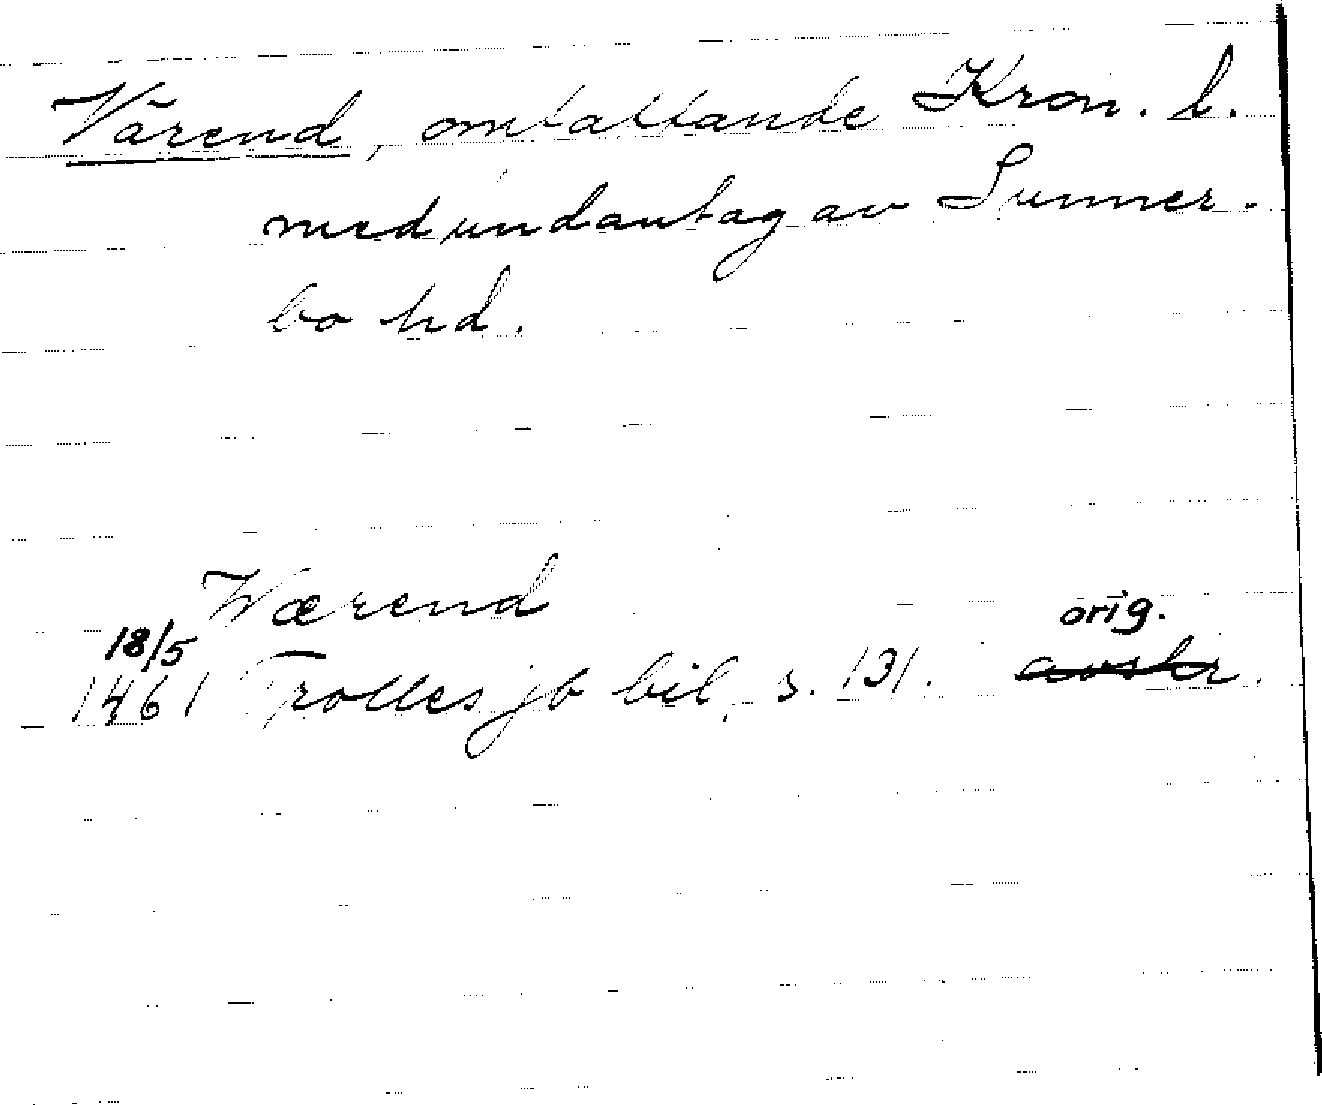 Värend, omfattande Kron. l.
med undantag av Sunner-
bo hd.
Wærend
18/5 orig.
1461 Trolles jb bil, s. 131. avskr.